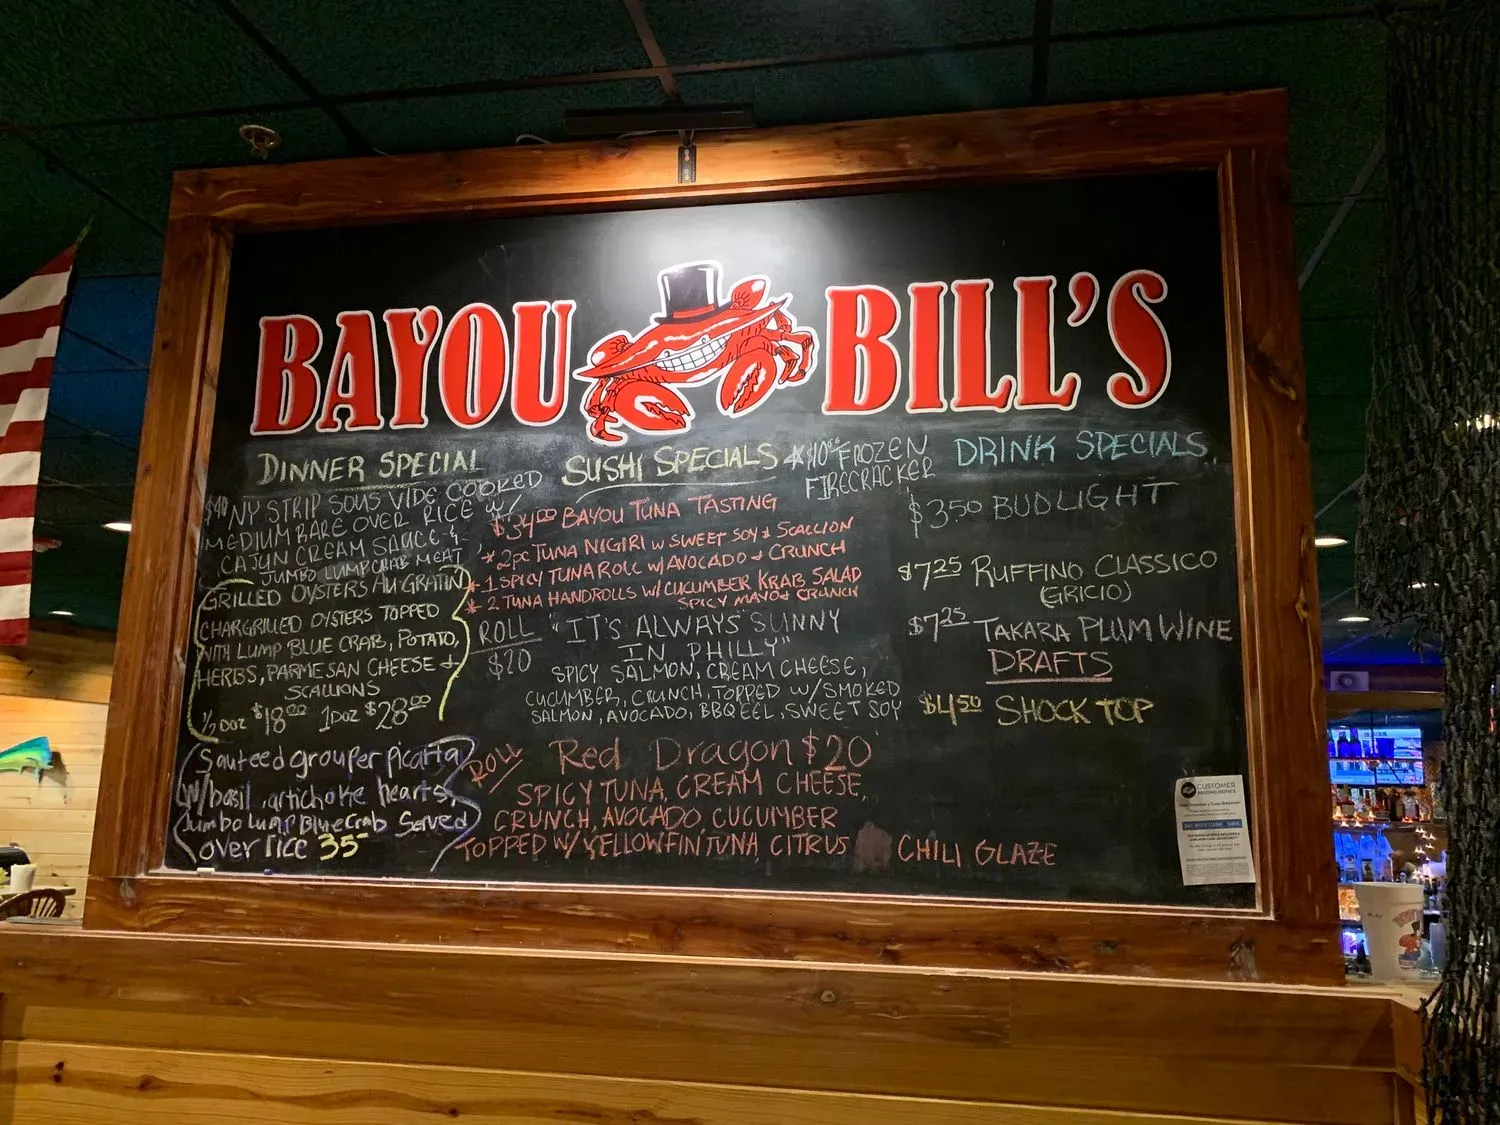 BAYOU BILL'S
DINNER SPECIAL
$40 NY STRIP SOUS VIDE COOKED
MEDIUM RARE OVER RICE W/
CAJUN CREAM SAUCE &
JUMBO LUMP CRAB MEAT
GRILLED OYSTERS AU GRATIN
CHARGRILLED OYSTERS TOPPED
WITH LUMP BLUE CRAB, POTATO,
HERBS, PARMESAN CHEESE &
SCALLIONS
1/2 DOZ $18.00 1 DOZ $28.00
Sauteed grouper Picatta
w/basil, artichoke hearts,
Jumbo Lump Blue Crab Served
over rice 35
SUSHI SPECIALS
$34.00 BAYOU TUNA TASTING
* 2pc TUNA NIGIRI W SWEET SOY & SCALLION
* 1 SPICY TUNA ROLL W/ AVOCADO & CRUNCH
* 2 TUNA HANDROLLS W/ CUCUMBER KRAB SALAD
SPICY MAYO & CRUNCH
ROLL "IT'S ALWAYS SUNNY
$20 IN PHILLY"
SPICY SALMON, CREAM CHEESE,
CUCUMBER, CRUNCH, TOPPED W/SMOKED
SALMON, AVOCADO, BBQ EEL, SWEET SOY
ROLL Red Dragon $20
SPICY TUNA, CREAM CHEESE,
CRUNCH, AVOCADO, CUCUMBER
TOPPED W/ YELLOWFIN TUNA, CITRUS CHILI GLAZE
*$10.00 FROZEN
FIRECRACKER
DRINK SPECIALS
$3.50 BUD LIGHT
$7.25 RUFFINO CLASSICO
(GRICIO)
$7.25 TAKARA PLUM WINE
DRAFTS
$4.50 SHOCK TOP
CUSTOMER
PRICING NOTICE